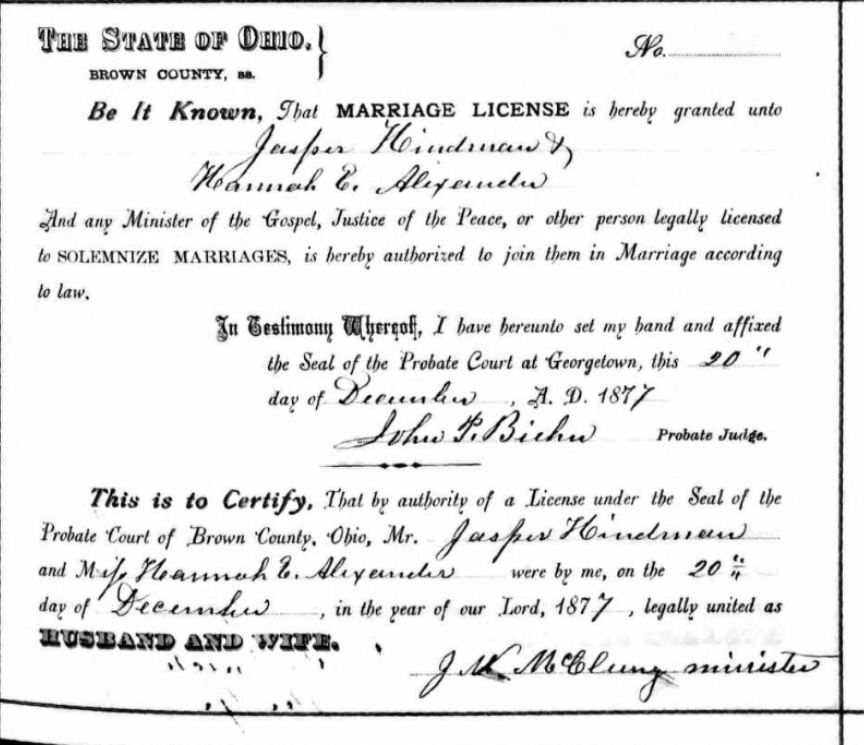 THE STATE OF OHIO, }
No.
BROWN COUNTY, ss.
Be It Known, That MARRIAGE LICENSE is hereby granted unto
Jasper Hindman &
Hannah E. Alexander
And any Minister of the Gospel, Justice of the Peace, or other person legally licensed
to SOLEMNIZE MARRIAGES, is hereby authorized to join them in Marriage according
to law.
In Testimony Whereof, I have hereunto set my hand and affixed
the Seal of the Probate Court at Georgetown, this 20 "
day of December, A. D. 1877
John P. Biehn Probate Judge.
This is to Certify, That by authority of a License under the Seal of the
Probate Court of Brown County, Ohio, Mr. Jasper Hindman
and Miss Hannah E. Alexander were by me, on the 20 "
day of December, in the year of our Lord, 1877, legally united as
HUSBAND AND WIFE.
McClung minister